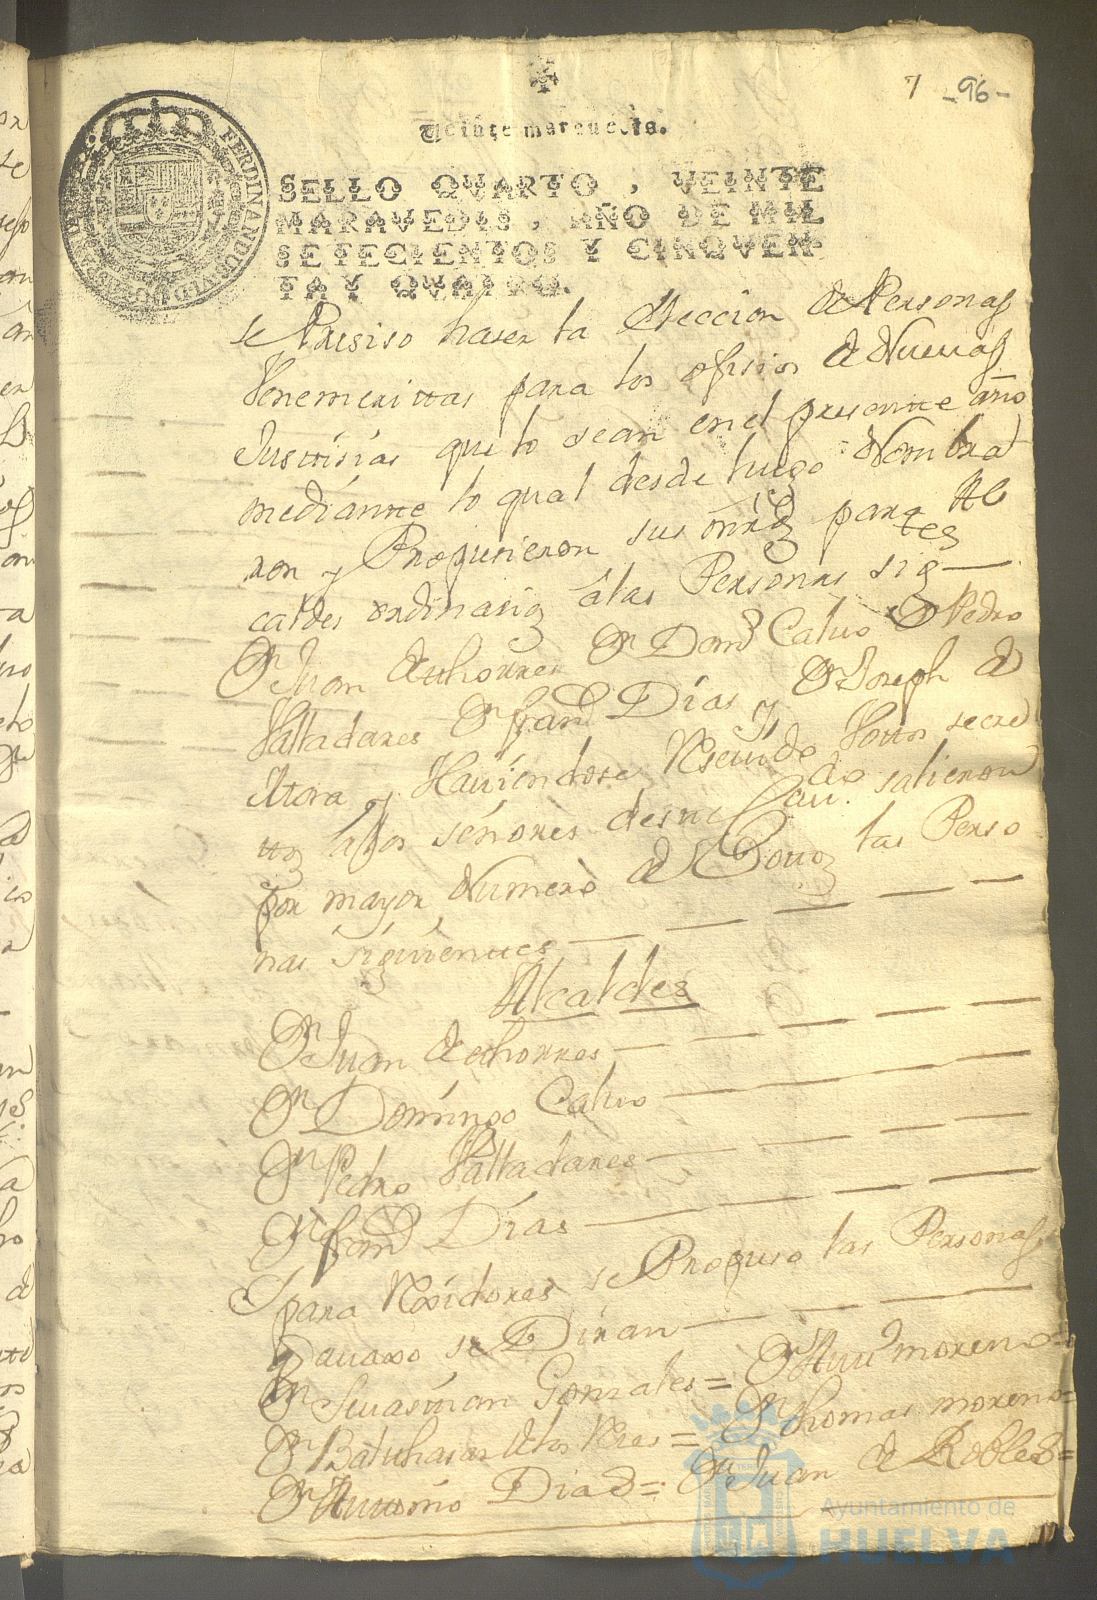 7 -96-
Veinte maravedis.
SELLO QVARTO, VEINTE
MARAVEDIS, AÑO DE MIL
SETECIENTOS Y CINQVEN-
TA Y QVATRO.
FERDINANDUS VI D G
se Presiso haser la Eleccion de Personas
Venemerittas para los ofisios de Nuevas
Justtisias que lo sean en el presente año
mediantte lo qual desde luego Nombra
ron y Propusieron sus mrds para Al
caldes ordinarios â las Personas sigtes
Dn Juan de thorres Dn Domo Calvo Dn Pedro
Valladares Dn Franco Dias y Dn Joseph de
Mora y Haviendose Resevido Vottos secre
ttos â los señores deste Cavdo salieron
por mayor Numero de Vottos las Perso
nas siguientes
Alcaldes
Dn Juan de thorres
Dn Domingo Calvo
Dn Pedro Valladares
Dn Franco Dias
Y para Rexidores se Propuso las Personas
q avaxo se Diran
Dn Sevastian Gonzales = Dn Anttº moreno =
Dn Balthasar de los Reies = Dn thomas moreno =
Dn Anttonio Diaz = Dn Juan de Robles =
Ayuntamiento de
HUELVA